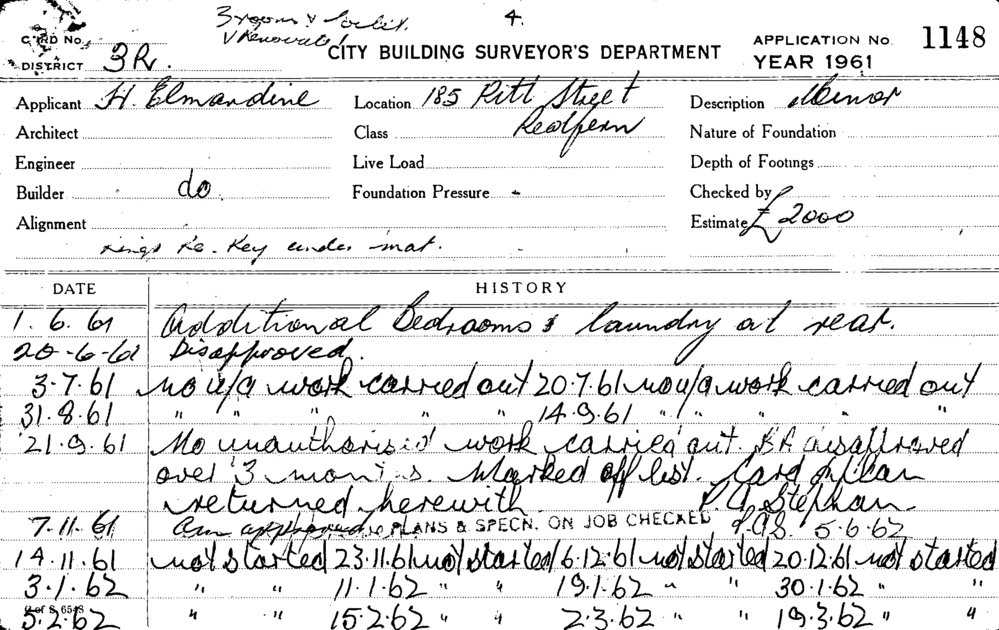 3 rooms & toilet. 4.
Renovated
CARD No. CITY BUILDING SURVEYOR'S DEPARTMENT APPLICATION No. 1148
DISTRICT 3R. YEAR 1961
Applicant H. Elmardine Location 185 Pitt Street Description Minor
Architect Class Redfern Nature of Foundation
Engineer Live Load Depth of Footings
Builder do Foundation Pressure - Checked by
Alignment Estimate £2000
Key under mat.
DATE HISTORY
1.6.61 Additional Bedrooms & laundry at rear.
20-6-61 Disapproved.
3.7.61 no u/a work carried out 20.7.61 no u/a work carried out
31.8.61 " " " " " 14.9.61 " " " " "
21.9.61 No unauthorised work carried out. BA disapproved
over 3 months. Marked off list. Card & plan
returned herewith. P.A. Stephan.
7.11.61 approved PLANS & SPECN. ON JOB CHECKED PAS. 5.6.62
14.11.61 not started 23.11.61 not started 6.12.61 not started 20.12.61 not started
3.1.62 " " 11.1.62 " " 19.1.62 " " 30.1.62 " "
5.2.62 " " 15.2.62 " " 2.3.62 " " 19.3.62 " "
C of S 6548